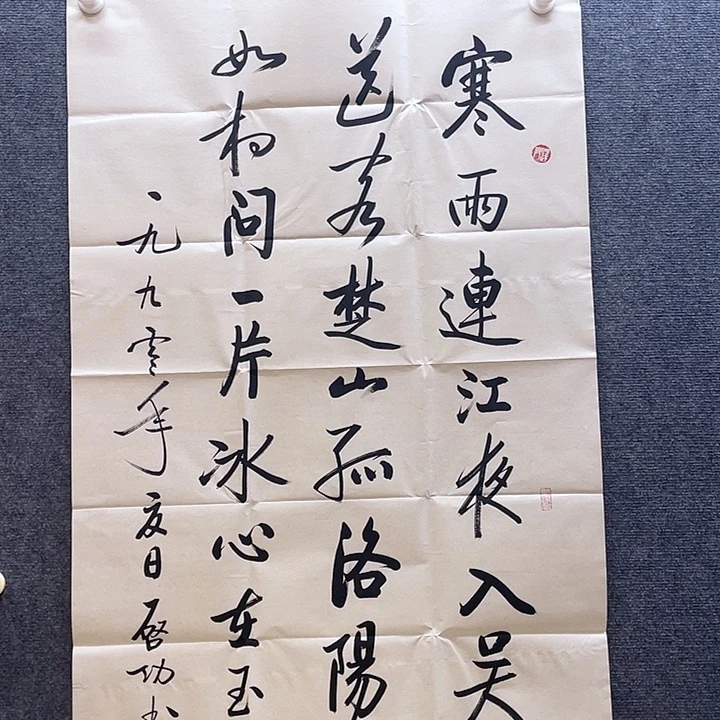 寒雨連江夜入吴
送客楚山孤洛陽
如相問一片冰心在玉
一九九零年夏日启功书